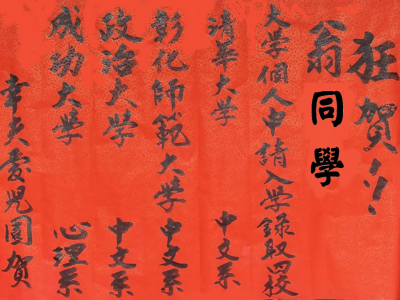 狂賀!!
翁同學
大學個人申請入學錄取四校
清華大學 中文系
彰化師範大學中文系
政治大學 中文系
成功大學 心理系
幸夫愛兒園賀